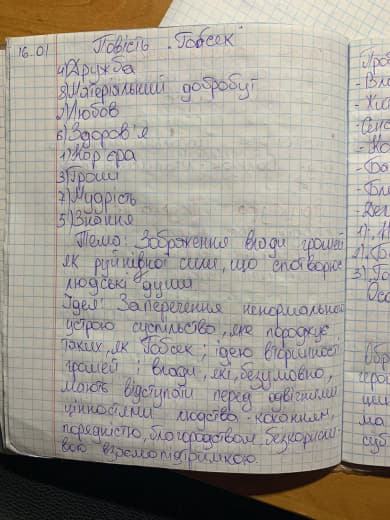 16.01 Повість „Гобсек"
4) Дружба
8) Матеріальний добробут
2) Любов
6) Здоров'я
1) Кар'єра
3) Гроші
7) Мудрість
5) Знання
Тема: Зображення влади грошей
як руйнівної сили, що спотворює
людські душі
Ідея: Заперечення ненормального
устрою суспільства, яке породжує
таких, як Гобсек; ідею вторинності
грошей і влади, які, безумовно,
мають відступати перед одвічними
цінностями людства - коханням,
порядністю, благородством безкорисли-
вою взаємопідтримкою.